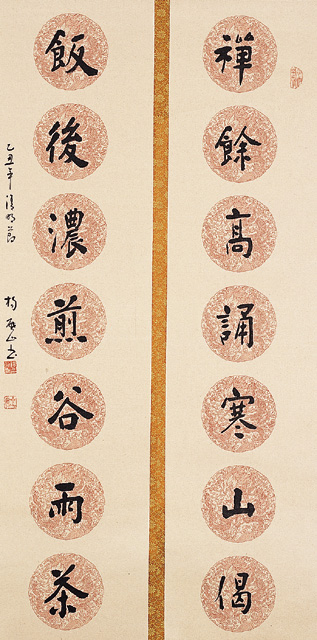 禪餘高誦寒山偈
飯後濃煎谷雨茶
乙丑年清明節